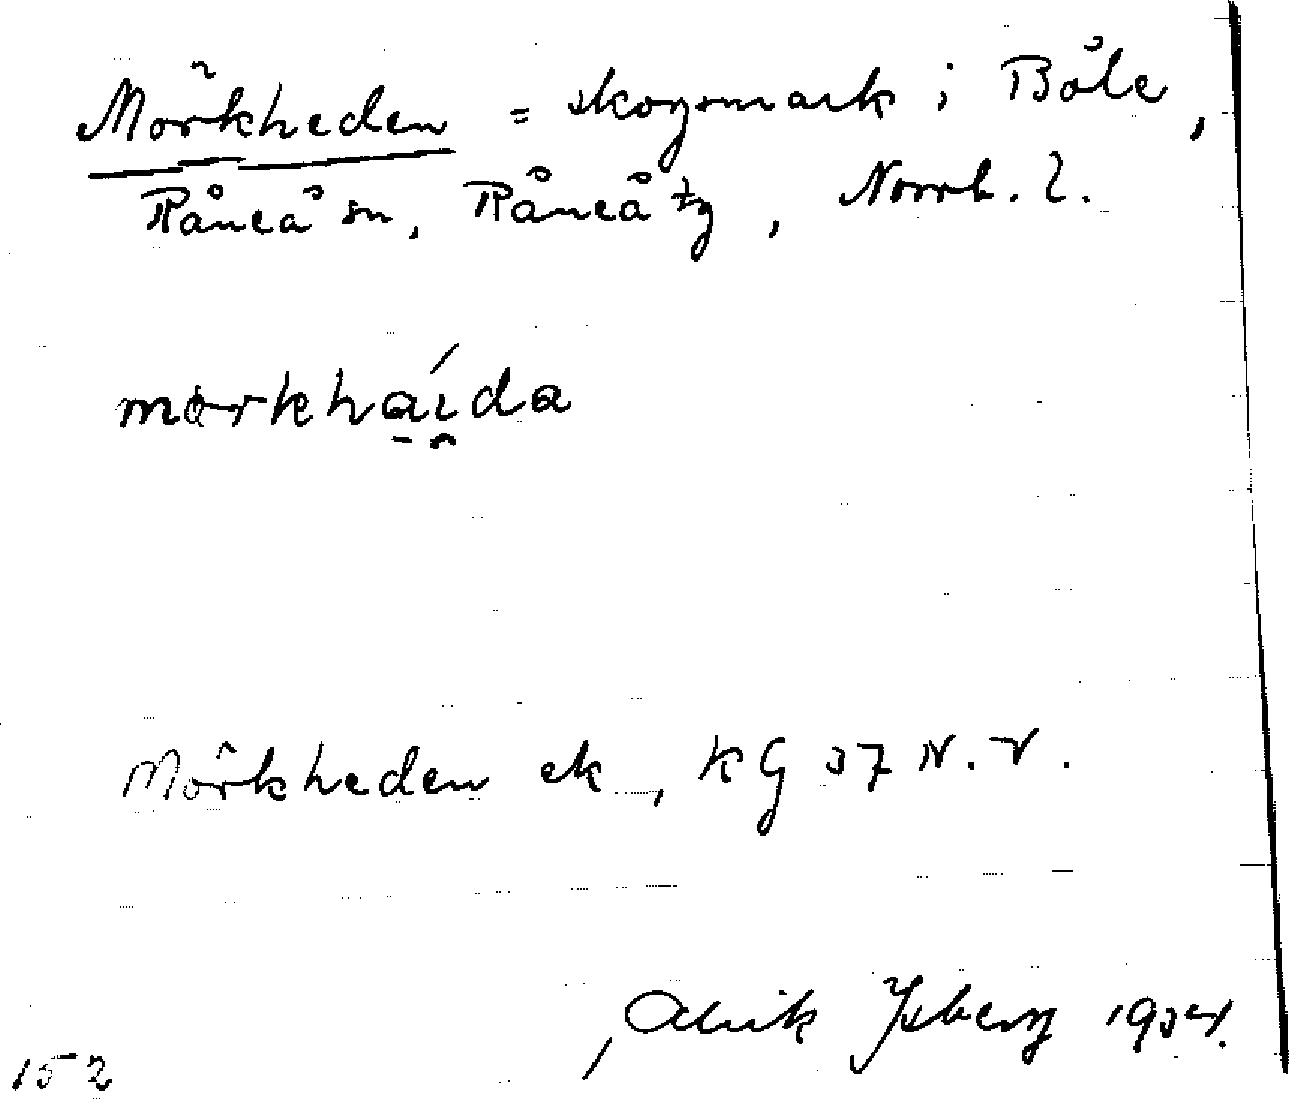 Mörkheden = skogsmark i Böle,
Råneå sn, Råneå tg, Norrb. l.
mörkhaída
Mörkheden ek, KG 37 N.V.
Ysberg 1934.
152